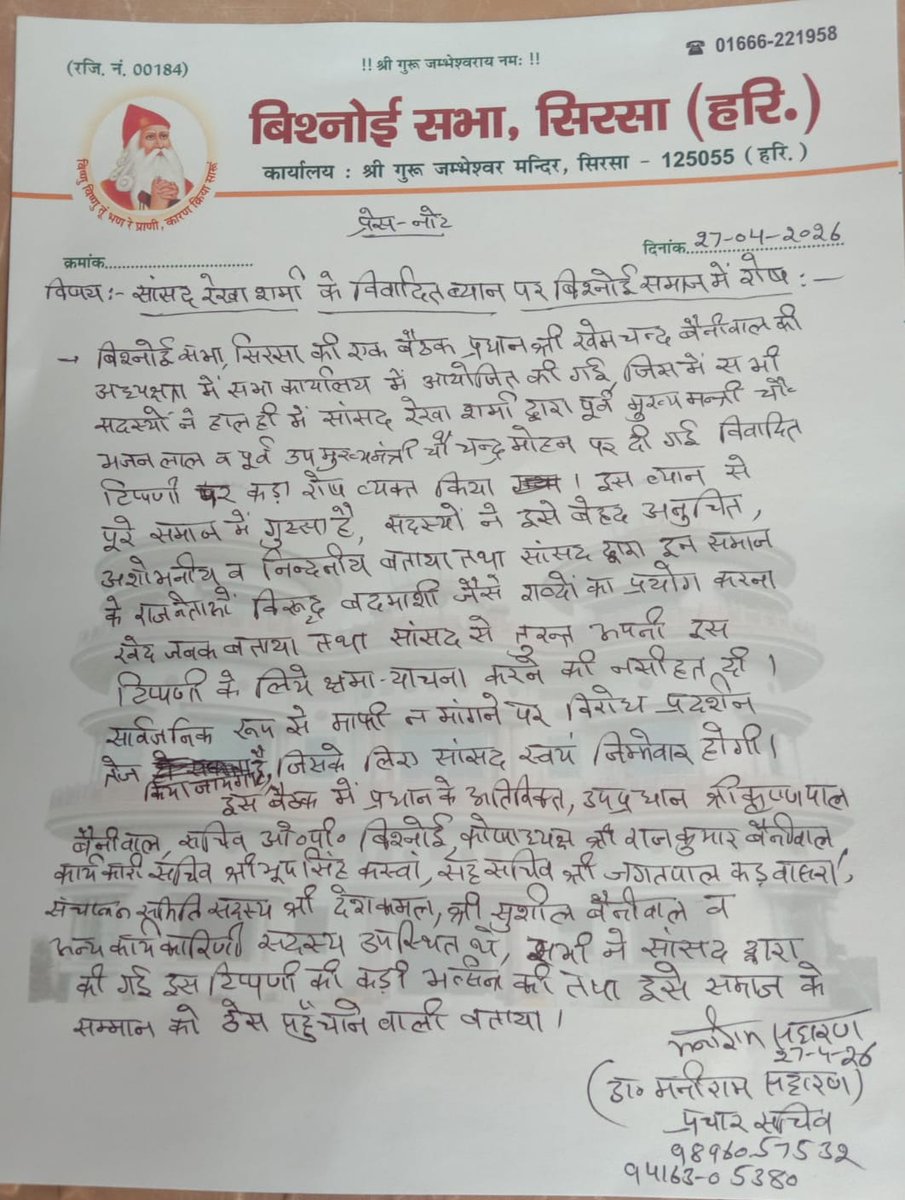 (रजि. नं. 00184)
!! श्री गुरू जम्भेश्वराय नमः !!
☎ 01666-221958
बिश्नोई सभा, सिरसा (हरि.)
कार्यालय : श्री गुरू जम्भेश्वर मन्दिर, सिरसा - 125055 (हरि.)
विष्णु विष्णु तूं भण रे प्राणी, कारण क्रिया सारूं
प्रेस-नोट
क्रमांक
दिनांक 27-04-2026
विषय:- सांसद रेखा शर्मा के विवादित ब्यान पर बिश्नोई समाज में रोष :-
→ बिश्नोई सभा, सिरसा की एक बैठक प्रधान श्री खेमचन्द बैनीवाल की
अध्यक्षता में सभा कार्यालय में आयोजित की गई, जिसमें सभी
सदस्यों ने हाल ही में सांसद रेखा शर्मा द्वारा पूर्व मुख्यमन्त्री चौ०
भजन लाल व पूर्व उपमुख्यमंत्री चौ चन्द्र मोहन पर दी गई विवादित
टिप्पणी पर कड़ा रोष व्यक्त किया । इस ब्यान से
पूरे समाज में गुस्सा है, सदस्यों ने इसे बेहद अनुचित,
अशोभनीय व निन्दनीय बताया तथा सांसद द्वारा इन समाज
के राजनेताओं विरूद्ध बदमाशी जैसे शब्दों का प्रयोग करना
खेद जनक बताया तथा सांसद से तुरन्त अपनी इस
टिप्पणी के लिये क्षमा-याचना करने की नसीहत दी ।
सार्वजनिक रूप से माफी न मांगने पर विरोध प्रदर्शन
तेज किया जायेगा, जिसके लिए सांसद स्वयं जिम्मेवार होगी।
इस बैठक में प्रधान के अतिरिक्त, उपप्रधान श्री कृष्णपाल
बैनीवाल, सचिव ओ०पी० बिश्नोई, कोषाध्यक्ष श्री राजकुमार बैनीवाल,
कार्यकारी सचिव श्री भूप सिंह कस्वां, सह सचिव श्री जगतपाल कड़वासरा,
संचालन समिति सदस्य श्री देशकमल, श्री सुशील बैनीवाल व
अन्य कार्यकारिणी सदस्य उपस्थित थे, सभी ने सांसद द्वारा
की गई इस टिप्पणी की कड़ी भर्त्सना की तथा इसे समाज के
सम्मान को ठेस पहुँचाने वाली बताया।
मनीराम सहारण
27-4-26
(डा० मनीराम सहारण)
प्रचार सचिव
9896057532
94163-05380